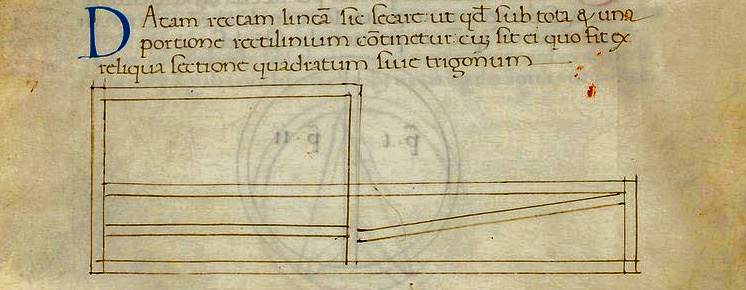 Datam rectam lineā sic secare ut qđ sub tota & una
portione rectilinium cōtinetur: eqꝫ sit ei quo fit ex
reliqua sectione quadratum siue trigonum